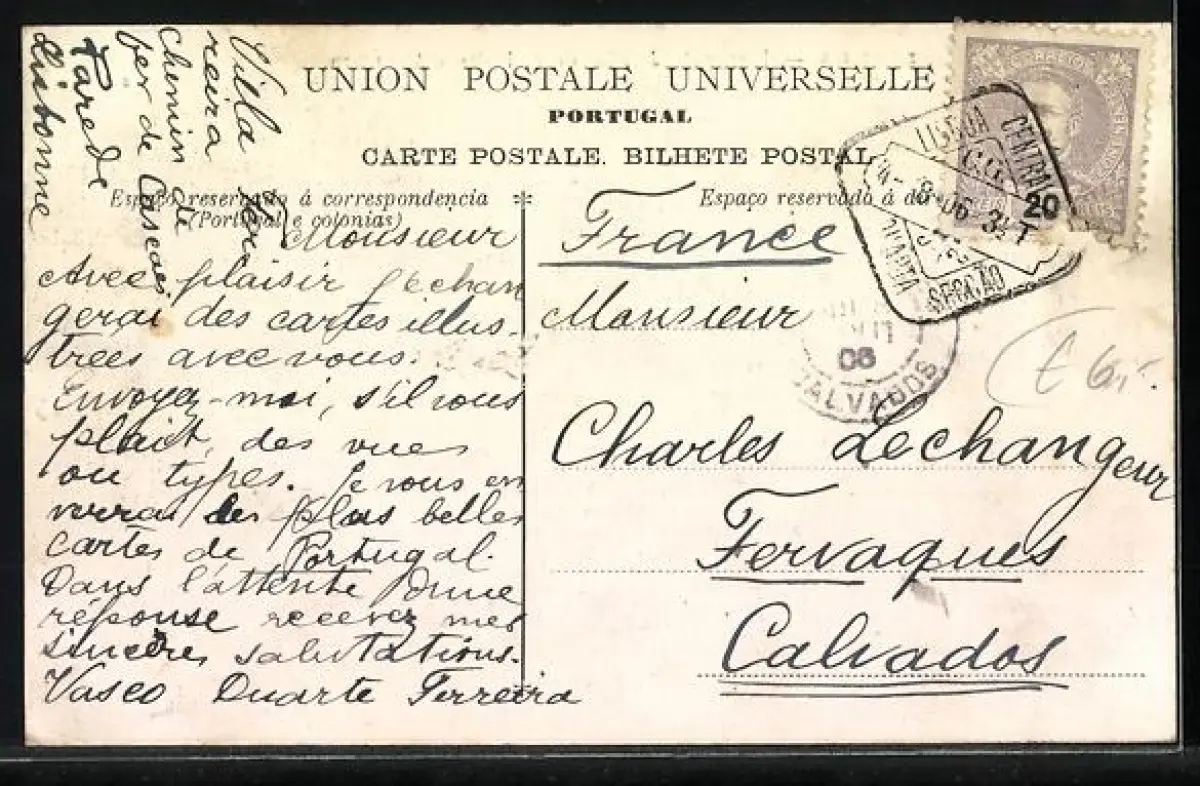 UNION POSTALE UNIVERSELLE
PORTUGAL
CARTE POSTALE. BILHETE POSTAL
Espaço reservado á correspondencia
(Portugal e colonias)
Espaço reservado á
Villa
reira
chemin du
fer de Cascaes
Parede
Lisbonne
Monsieur
Avec plaisir j'echan
gerai des cartes illus-
trees avec vous.
Envoyez-moi, s'il vous
plait, des vues
ou types. Je vous en
verrai des plus belles
cartes de Portugal.
Dans l'attente d'une
réponse recevez mes
sincères salutations.
Vasco Duarte Ferreira
France
Monsieur
Charles Lechangeur
Fervaques
Calvados
CORREIOS
20
LISBOA CENTRAL
06 3
T
SECÇÃO
06
CALVADOS
€ 6,-